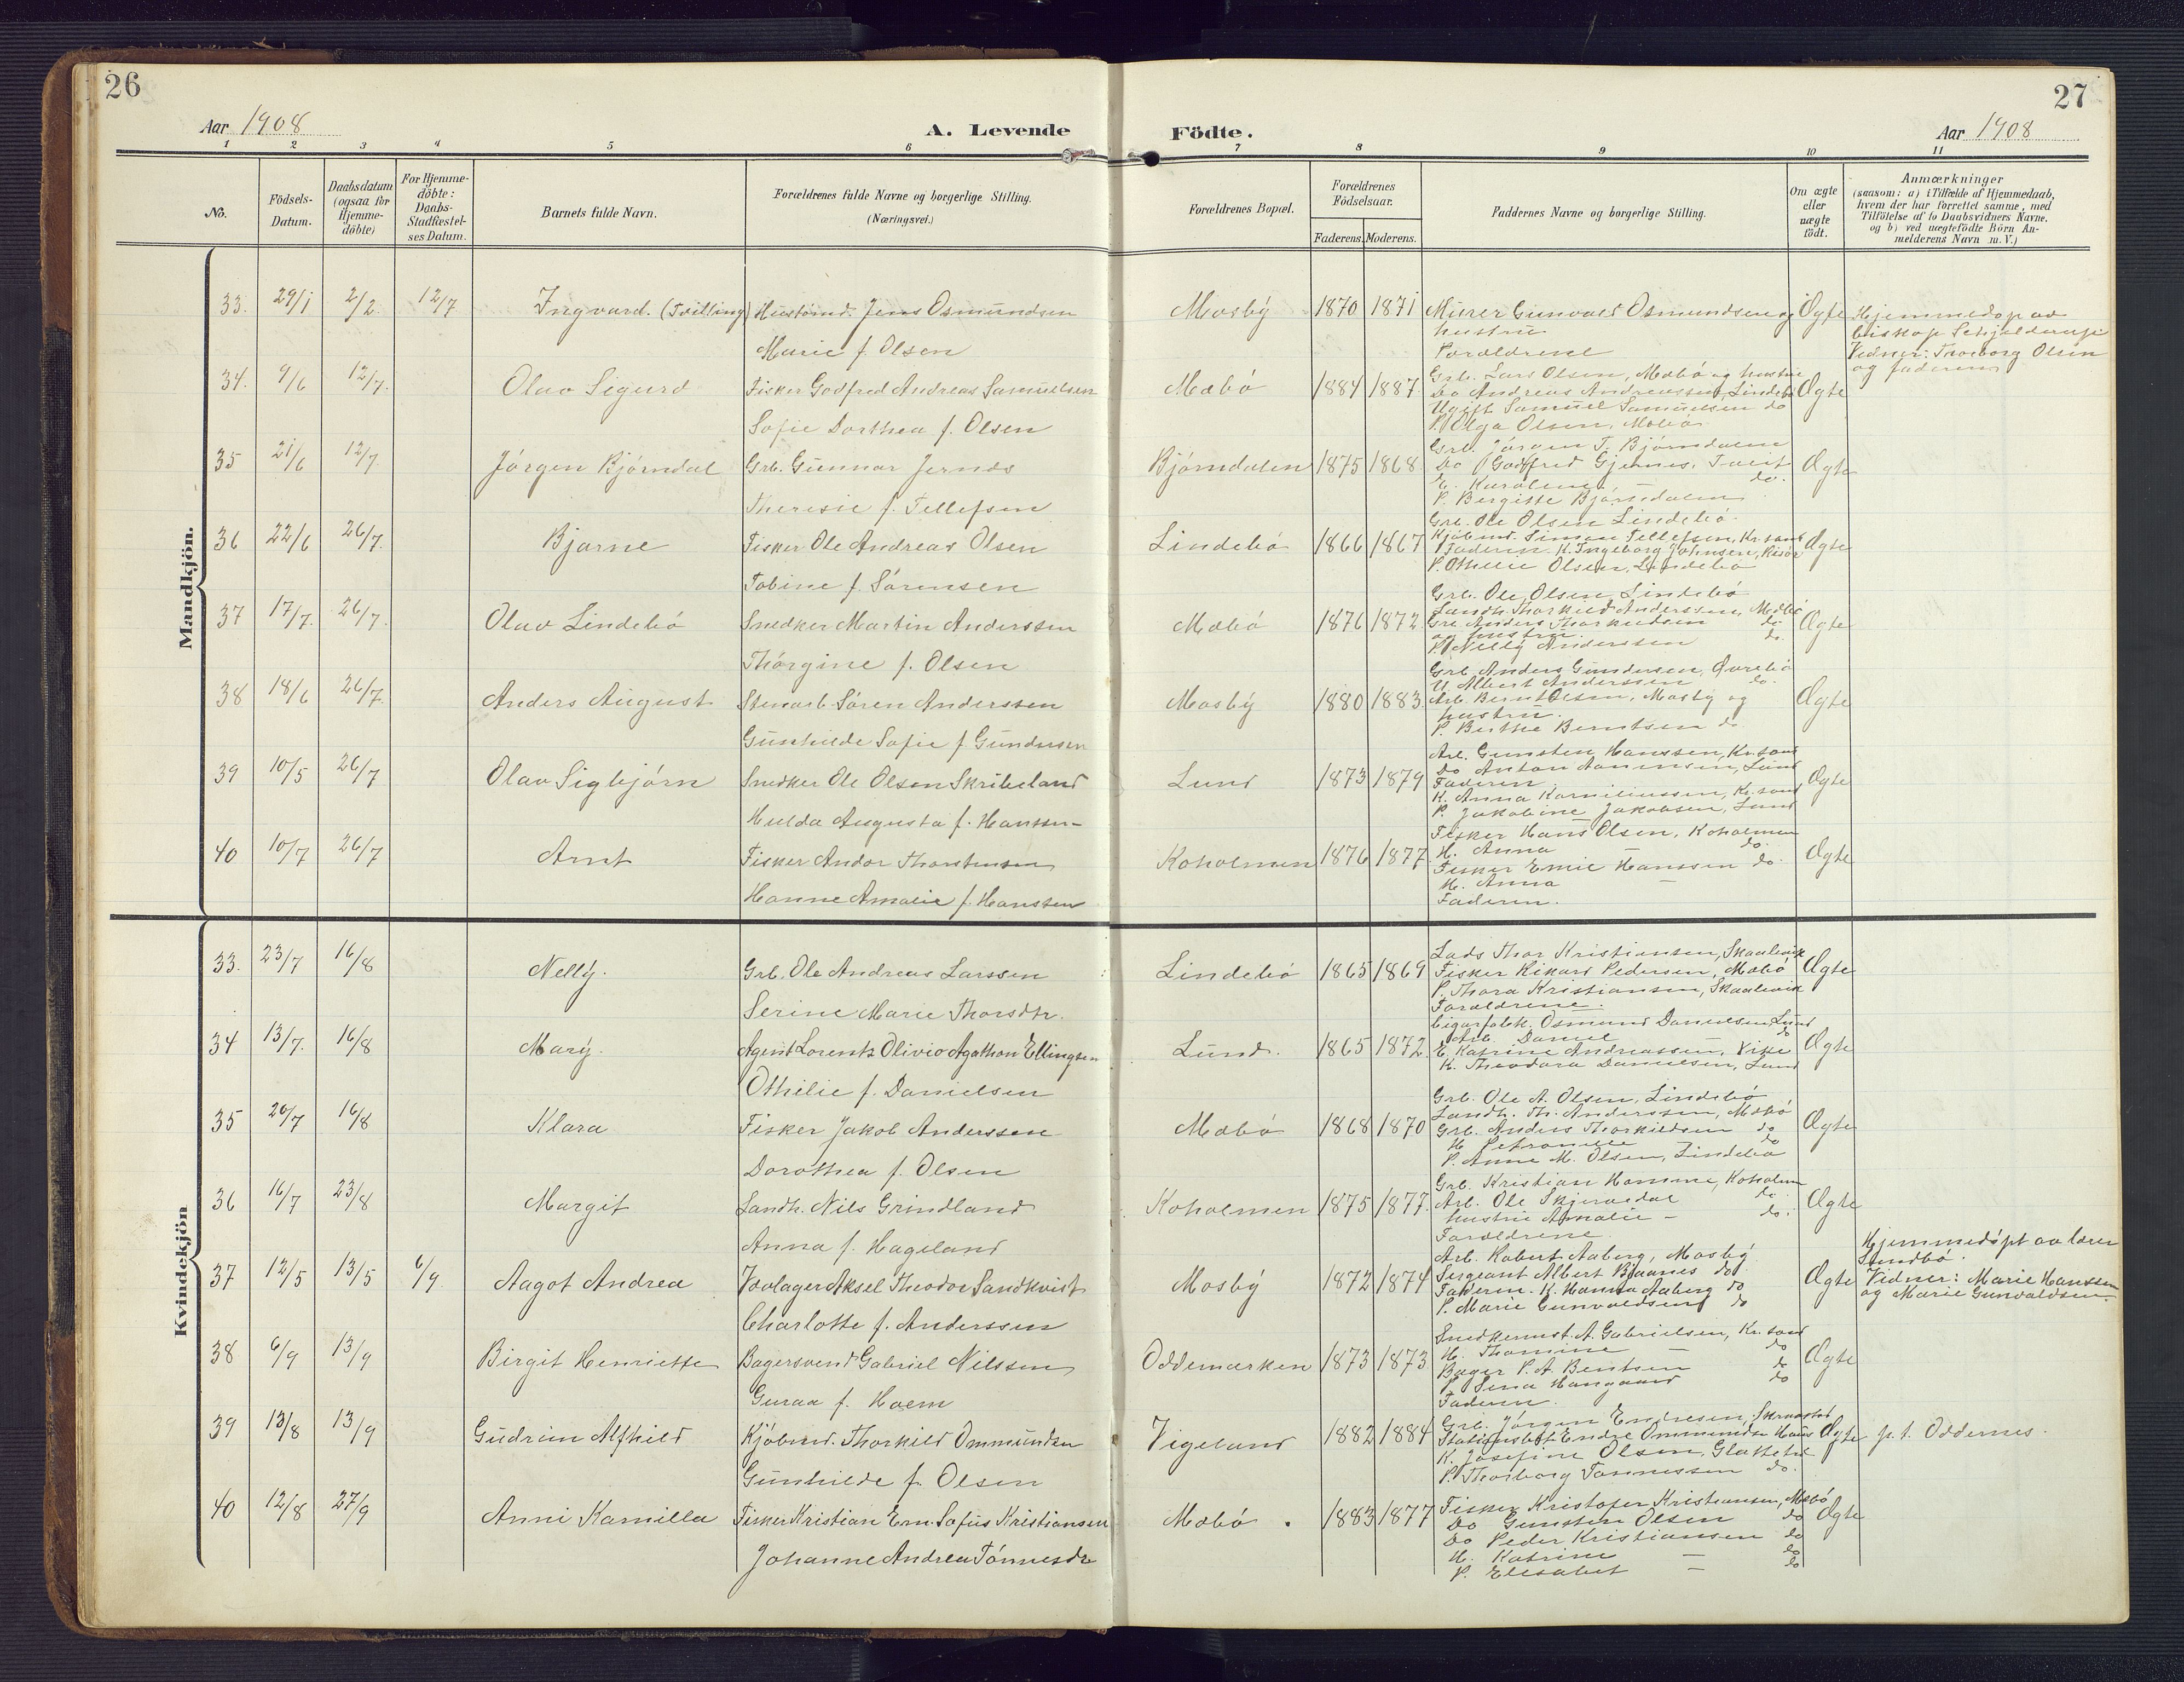 26
Aar 1908
A. Levende
Födte.
Aar 1908
27
1 2 3 4 5 6 7 8 9 10 11
No.
Födsels-
Datum.
Daabsdatum
(ogsaa for
Hjemme-
döbte)
For Hjemme-
döbte:
Daabs-
Stadfæstel-
ses Datum.
Barnets fulde Navn.
Forældrenes fulde Navne og borgerlige Stilling.
(Næringsvei.)
Forældrenes Bopæl.
Forældrenes
Födselsaar.
Faderens. Moderens.
Faddernes Navne og borgerlige Stilling.
Om ægte
eller
uægte
födt.
Anmærkninger
(saasom: a) i Tilfælde af Hjemmedaab,
hvem der har forrettet samme, med
Tilföielse af to Daabsvidners Navne,
og b) ved uægtefödte Börn An-
melderens Navn m. V.)
Mandkjön.
33. 29/1 2/2 12/7 Ingvard. (Tvilling) Hustømd. Jens Osmundsen
Marie f. Olsen
Mosby 1870 1871 Murer Gunvald Osmundsen og
hustru
Forældrene
Ægte
Hjemmedøp av
biskop Schjelderup
Vidner: Thorborg Olsen
og faderen
34. 9/6 12/7. Olav Sigurd Fisker Godfred Andreas Samuelsen
Sofie Dorthea f. Olsen
Mæbø 1884 1887 Grb. Lars Olsen, Mæbø og hustru
Do Andreas Andreassen, Lindebø
Ugift Samuel Samuelsen do
P. Olga Olsen, Mæbø
Ægte
35 21/6 12/7 Jørgen Bjørndal Grb. Gunnar Jernæs
Theresie f. Tellefsen
Bjørndalen 1875 1868 Grb. Jørgen T. Bjørndalen
Do Godfred Gjernes, Tveit
E. Karoline — do.
P. Bergitte Bjørndalen
Ægte
36 22/6 26/7. Bjarne Fisker Ole Andreas Olsen
Tobine f. Sørensen
Lindebø 1866 1867 Grb. Ole Olsen Lindebø
Kjøbmd. Simon Tellefsen, Kr.sand
Faderen. K. Ingeborg Johnsen, Risør
P. Othilie Olsen, Lindebø
Ægte
37 17/7. 26/7. Olav Lindebø Snedker Martin Anderssen
Thorgine f. Olsen
Mæbø 1876 1872 Grb. Ole Olsen Lindebø
Landh. Thorkild Anderssen, Mæbø
Grb. Anders Thorkildsen do
og hustru. do.
P. Nelly Anderssen
Ægte
38 18/6 26/7. Anders August Stenarb. Søren Anderssen
Gunhilde Sofie f. Gundersen
Mosby 1880 1883 Grb. Anders Gundersen,
U. Albert Anderssen do.
Arb. Bernt Olsen, Mosby og
hustru.
P. Berthe Berntsen do
Ægte
39 10/5 26/7 Olav Sigbjørn Snedker Ole Olsen Skribeland
Hulda Augusta f. Hanssen
Lund 1873 1879 Arb. Gunsten Hanssen, Kr.sand
Do Anton Aanensen, Lund
Faderen
K. Anna Korniliussen, Kr.sand
P. Jakobine Jakobsen, Lund
Ægte
40 10/7 26/7 Arnt Fisker Andor Thorstensen
Hanne Amalie f. Hanssen
Koholmen 1876 1877 Fisker Hans Olsen, Koholmen
H. Anna do.
Fisker Emil Hanssen do.
H. Anna —
Faderen.
Ægte
Kvindekjön
33. 23/7 16/8 Nelly. Grb. Ole Andreas Larssen
Serine Marie Thorsdtr.
Lindebø 1865 1869 Lods Thor Kristiansen, Skaalevik
Fisker Rikard Pedersen, Mæbø
P. Thora Kristiansen, Skaalevik
Forældrene.
Ægte
34 13/7. 16/8 Mary. Agent Lorents Olivio Agathon Ellingsen
Othilie f. Danielsen
Lund. 1865 1872 Cigarfabk. Osmund Danielsen, Lund
Arb. Daniel — do
E. Katrine Andreassen, Vike
K. Theodora Danielsen, Lund
Ægte
35 20/7 16/8 Klara Fisker Jakob Anderssen
Dorothea f. Olsen
Mæbø 1868 1870 Grb. Ole A. Olsen, Lindebø
Landh. Th. Anderssen, Mæbø
Grb. Anders Thorkildsen do
H. Petronille do
P. Anne M. Olsen, Lindebø
Ægte
36 16/7 23/8 Margit Landh. Nils Grindland
Anna f. Hageland
Koholmen 1875 1877. Grb. Kristian Homme, Koholmen
Arb. Ole Skjævedal do.
hustru Amalie — do.
Forældrene.
Ægte
37 12/5 13/5 6/9. Aagot Andrea Aksel Theodor Sandkvist
Charlotte f. Anderssen
Mosby 1872 1874 Arb. Robert Aaberg, Mosby
Sergeant Albert Bjaanes do.
Faderen. K. Hanna Aaberg do
P. Marie Gunvaldsen do
Ægte
Hjemmedøpt av lærer
Sundbø.
Vidner: Marie Hanssen
og Marie Gunvaldsen.
38 6/9 13/9 Birgit Henriette Bagersvend Gabriel Nilssen
Guraa f. Hoem
Oddemarken 1873 1873 Snedkermst. A. Gabrielsen, Kr.sand
H. Thomine — do
Bager P. A. Bentsen do
P. Lina Haugaard do
Faderen.
Ægte
39 13/8 13/9 Gudrun Alfhild Kjøbmd. Thorkild Ommundsen
Gunhilde f. Olsen
Vigeland 1882 1884 Grb. Jørgen Endresen,
Stationsbest. Endre Ommundsen
K. Josefine Olsen, Glattetre
P. Thorborg Tønnessen do.
Ægte p. t. Oddernes.
40 12/8 27/9 Anni Kamilla Fisker Kristian Em. Sofus Kristiansen
Johanne Andrea Tønnesdtr
Mæbø . 1883 1877 Fisker Kristofer Kristiansen, Mæbø
Do Gunsten Olsen do
Do Peder Kristiansen do
H. Katrine — do
P. Elisabet — do
Ægte